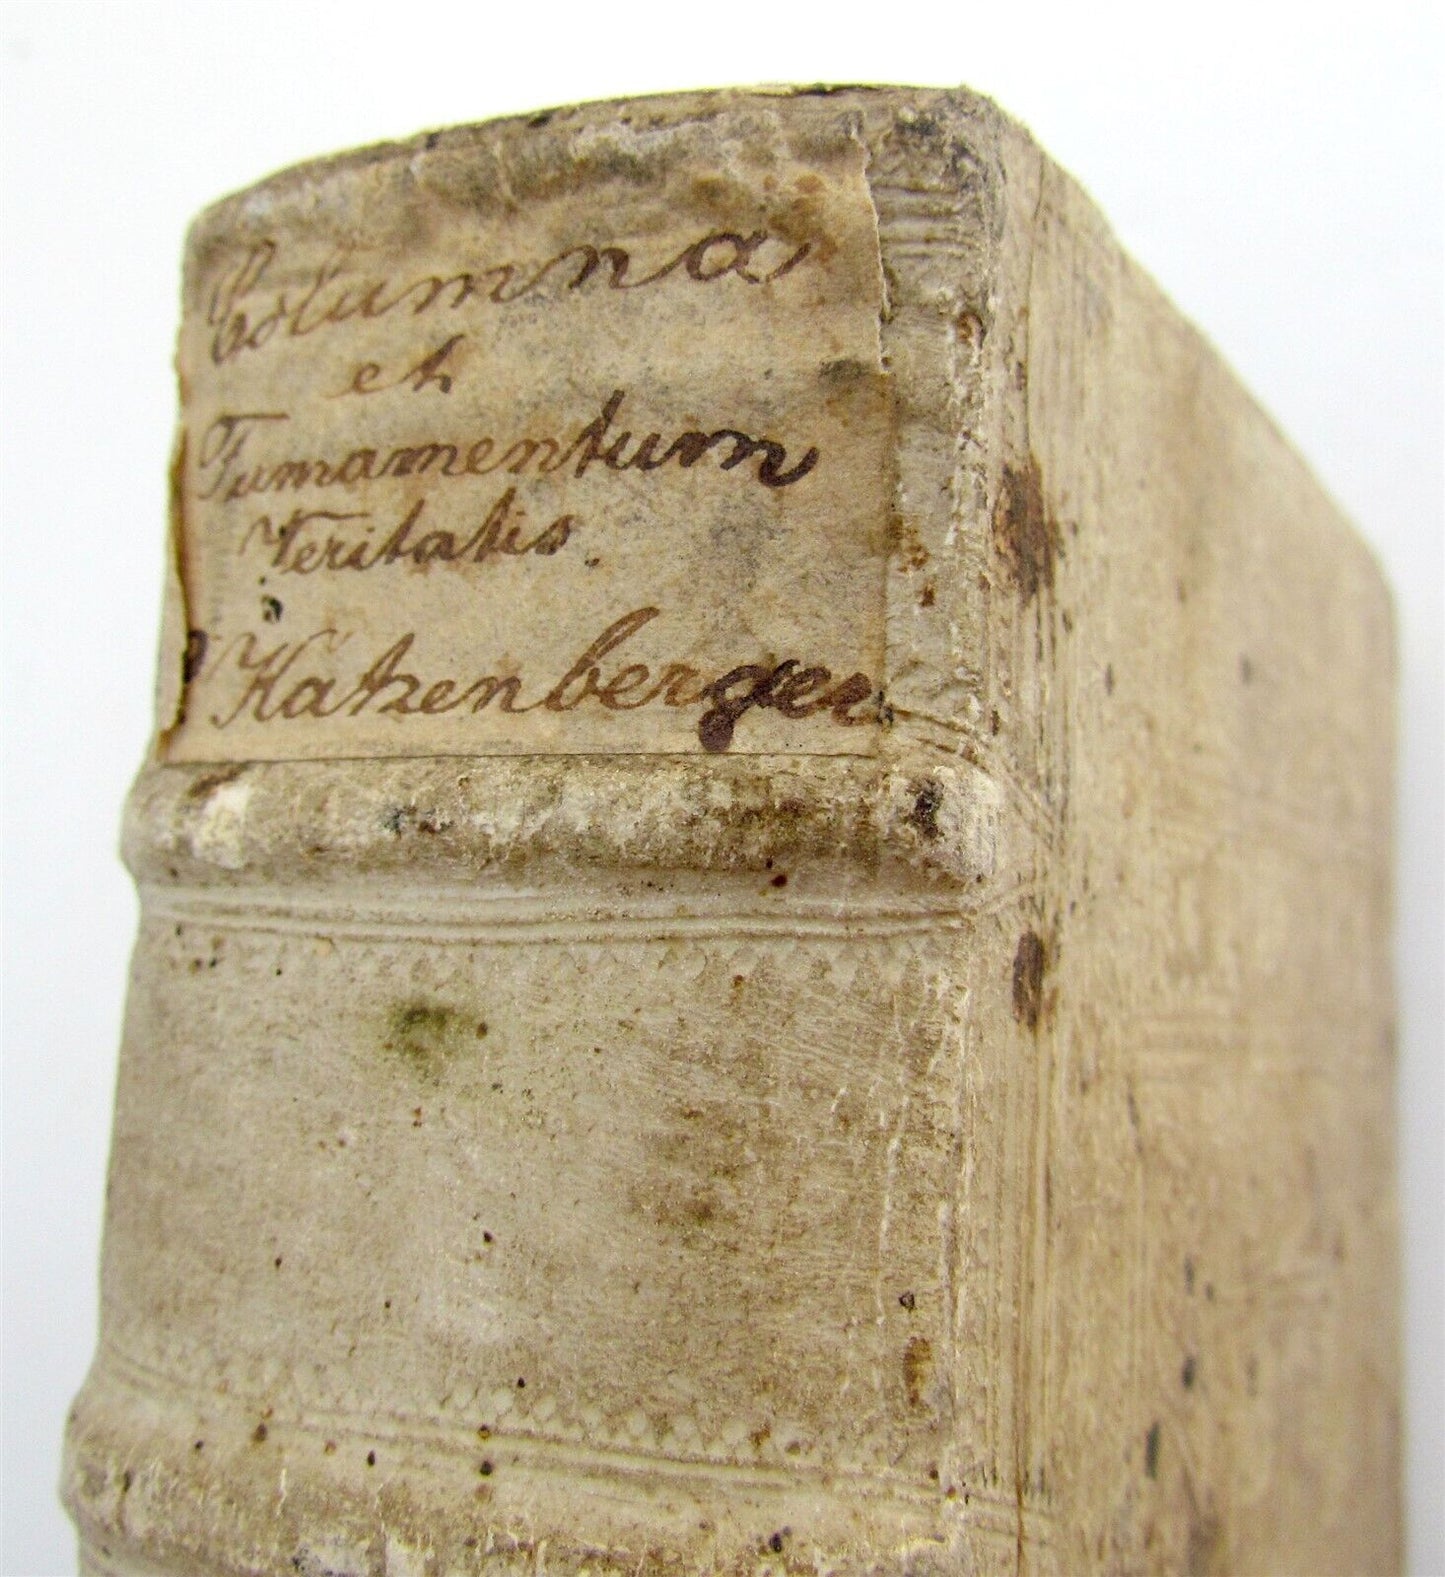 Columna
et
Fumamentum
Veritatis.
Katzenberger